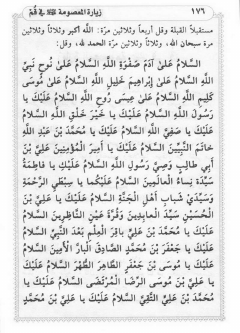 ١٧٦ زيارة المعصومة عليها السلام في قم
مستقبلاً القبلة وقل أربعاً وثلاثين مرّة: اللَّه أكبر وثلاثاً وثلاثين
مرة سبحان الله، وثلاثاً وثلاثين مرّة الحمد لله، وقل:
السَّلامُ عَلىٰ آدَمَ صَفْوَةِ اللَّهِ السَّلامُ عَلىٰ نُوحٍ نَبِيِّ
اللَّهِ السَّلامُ عَلىٰ إِبْراهِيمَ خَلِيلِ اللَّهِ السَّلامُ عَلىٰ مُوسىٰ
كَلِيمِ اللَّهِ السَّلامُ عَلىٰ عِيسىٰ رُوحِ اللَّهِ السَّلامُ عَلَيْكَ يا
رَسُولَ اللَّهِ السَّلامُ عَلَيْكَ يا خَيْرَ خَلْقِ اللَّهِ السَّلامُ
عَلَيْكَ يا صَفِيَّ اللَّهِ السَّلامُ عَلَيْكَ يا مُحَمَّدَ بْنَ عَبْدِ اللَّهِ
خاتَمَ النَّبِيِّينَ السَّلامُ عَلَيْكَ يا أَمِيرَ المُؤْمِنِينَ عَلِيَّ بْنَ
أَبِي طالِبٍ وَصِيَّ رَسُولِ اللَّهِ السَّلامُ عَلَيْكِ يا فاطِمَةُ
سَيِّدَةَ نِساءِ العالَمِينَ السَّلامُ عَلَيْكُما يا سِبْطَيِ الرَّحْمَةِ
وَسَيِّدَيْ شَبابِ أَهْلِ الجَنَّةِ السَّلامُ عَلَيْكَ يا عَلِيَّ بْنَ
الحُسَيْنِ سَيِّدَ العابِدِينَ وَقُرَّةَ عَيْنِ النَّاظِرِينَ السَّلامُ
عَلَيْكَ يا مُحَمَّدَ بْنَ عَلِيٍّ باقِرَ العِلْمِ بَعْدَ النَّبِيِّ السَّلامُ
عَلَيْكَ يا جَعْفَرَ بْنَ مُحَمَّدٍ الصَّادِقَ البارَّ الأَمِينَ السَّلامُ
عَلَيْكَ يا مُوسىٰ بْنَ جَعْفَرٍ الطَّاهِرَ الطُّهْرَ السَّلامُ عَلَيْكَ
يا عَلِيَّ بْنَ مُوسىٰ الرِّضَا المُرْتَضىٰ السَّلامُ عَلَيْكَ يا
مُحَمَّدَ بْنَ عَلِيٍّ التَّقِيَّ السَّلامُ عَلَيْكَ يا عَلِيَّ بْنَ مُحَمَّدٍ